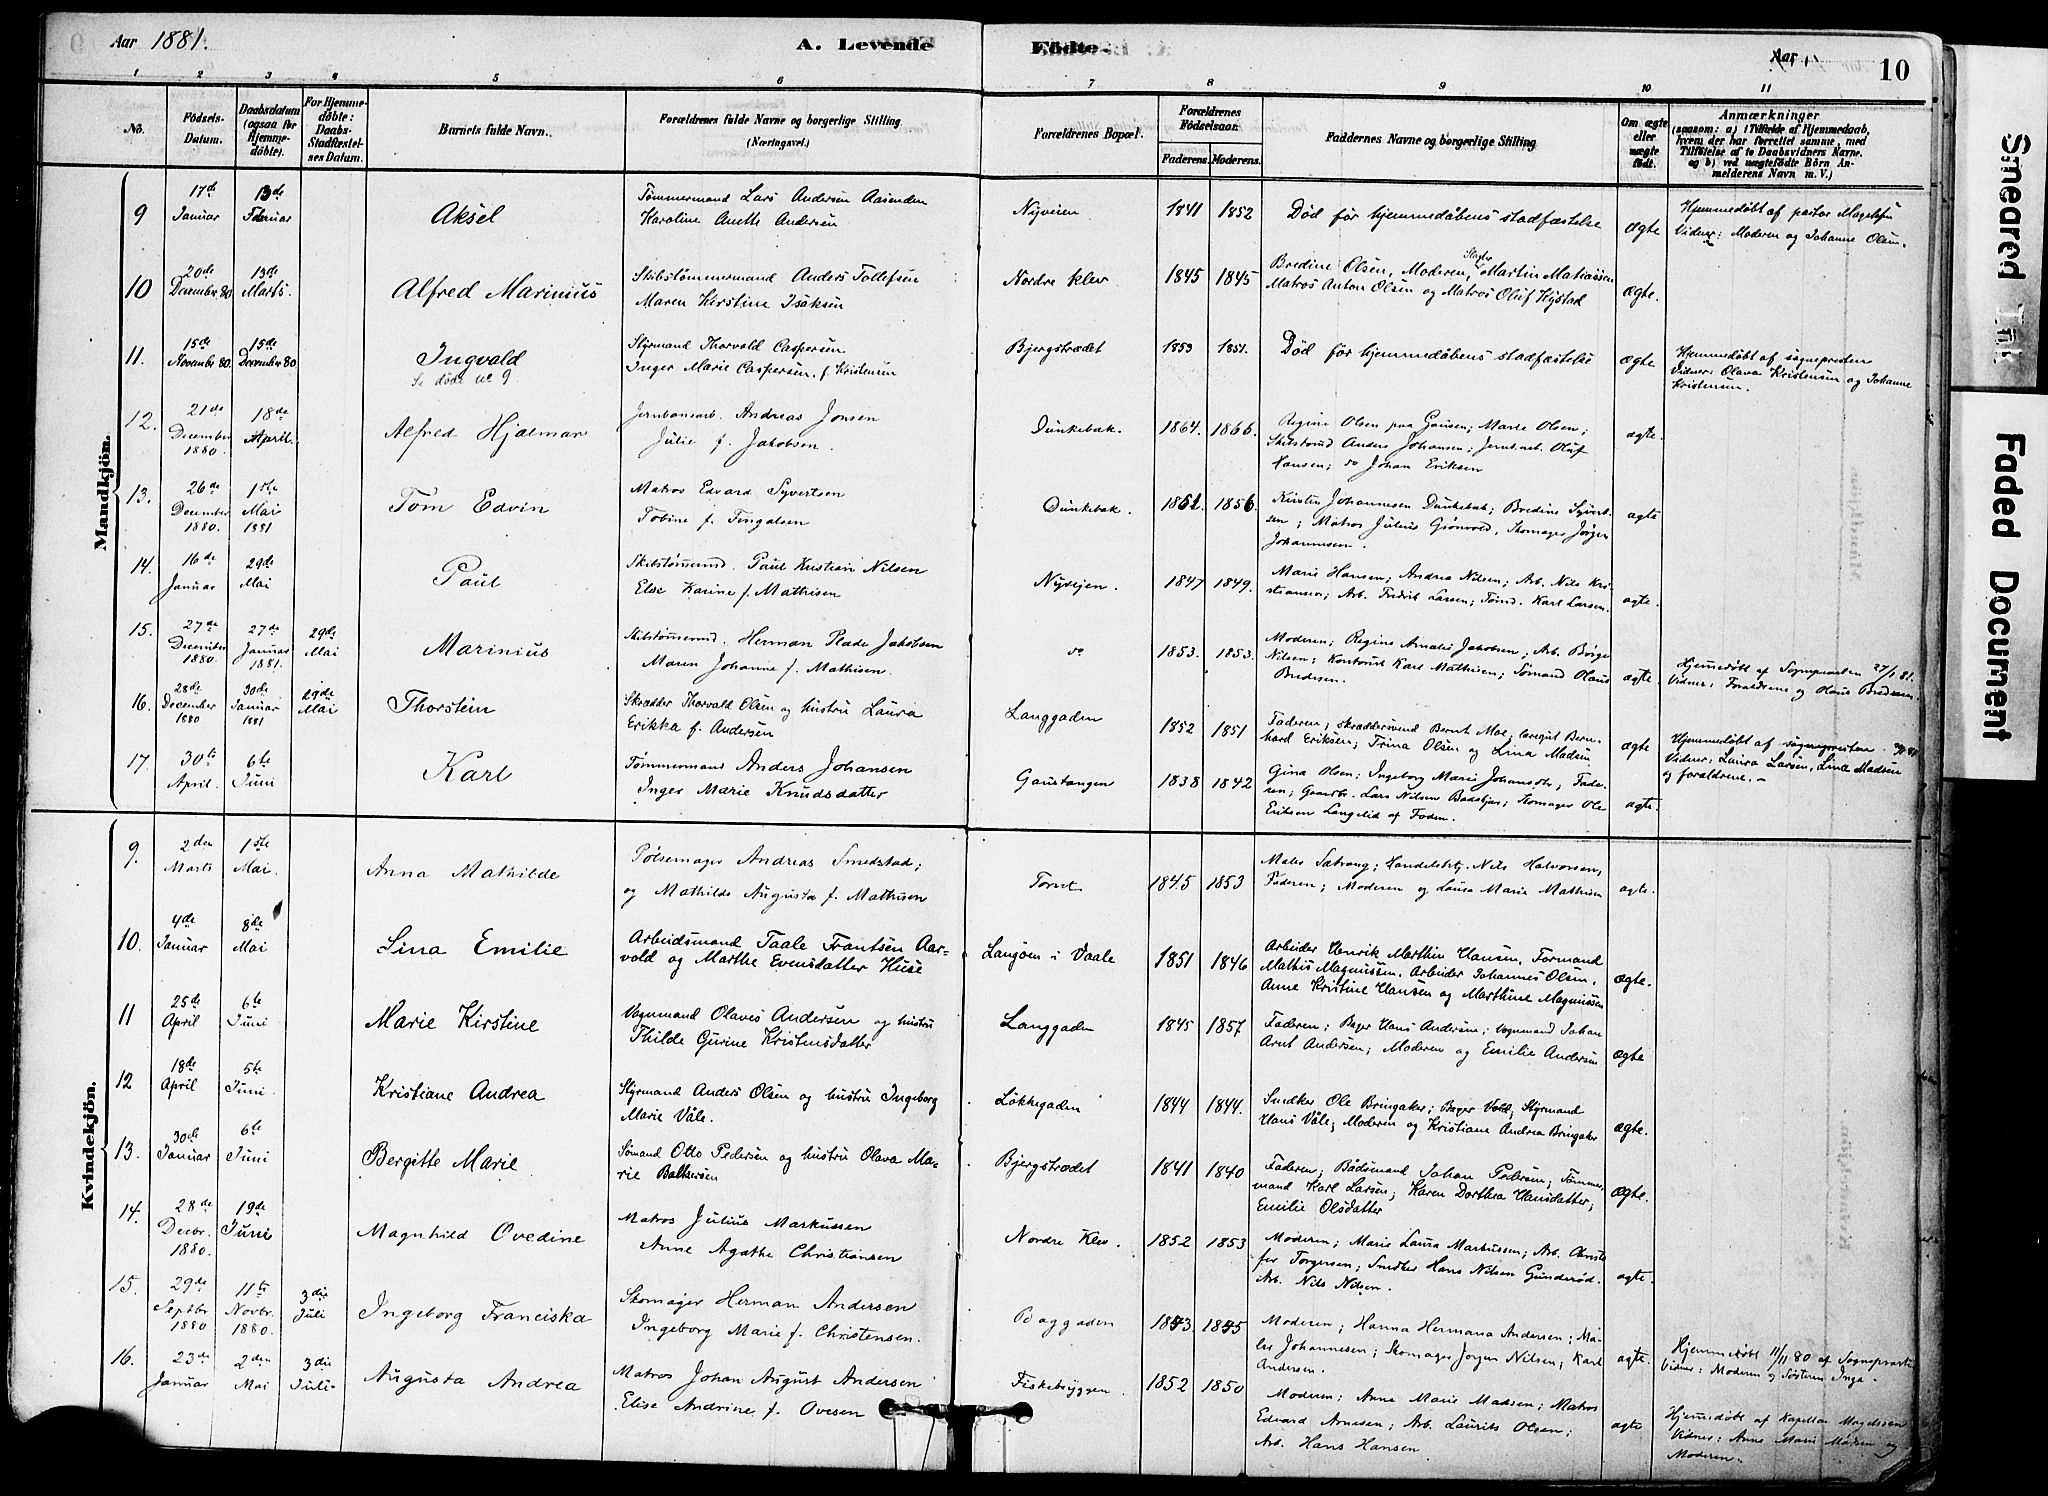 Aar 1881.
A. Levende
Födte.
Aar
10
1 2 3 4 5 6 7 8 9 10 11
No.
Födsels-Datum.
Daabsdatum (ogsaa for Hjemme-döbte).
For Hjemme-döbte: Daabs-Stadfæstel-ses Datum.
Barnets fulde Navn.
Forældrenes fulde Navne og borgerlige Stilling (Næringsvei.)
Forældrenes Bopæl.
Forældrenes Födselsaar.
Faderens. Moderens.
Faddernes Navne og borgerlige Stilling.
Om ægte eller uægte födt.
Anmærkninger (saasom: a) i Tilfælde af Hjemmedaab, hvem der har forrettet samme, med Tilföielse af to Daabsvidners Navne, og b) ved uægtefödte Börn Anmelderens Navn m. V.)
Mandkjön.
9 17de Januar 13de Februar Aksel
Tømmermand Lars Andersen Aasenden
Karoline Anette Andersen
Nyveien 1841 1852 Død før hjemmedåbens stadfæstelse ægte
Hjemmedøbt af pastor Magelssen
Vidner: Moderen og Johanne Olsen.
10 20de December 80 13de Marts. Alfred Marinius
Skibstømmermand Anders Tollefsen
Maren Kirstine Isaksen
Nordre klev 1845 1845
Bredine Olsen, Moderen, Martin Matiassen
Matros Anton Olsen og Matros Oluf Hystad ægte.
11. 15de November 80. 15de December 80 Ingvald
Se døde no 9
Styrmand Thorvald Caspersen
Inger Marie Caspersen, f. Kristensen
Bjergstrædet 1853 1851. Død før hjemmedåbens stadfæstelse ægte
Hjemmedøbt af sognepresten
Vidner: Olava Kristensen og Johanne
Kristensen.
12. 21de December 1880. 18de April. Alfred Hjalmar
Jernbanearb. Andreas Jonsen
Julie f. Jakobsen.
Dunkebæk. 1864. 1866.
Regine Olsen paa Gausen; Marie Olsen;
Skibstmd Anders Johansen; Jernb.arb. Oluf
Hansen; do Johan Eriksen ægte.
13. 26de December 1880. 1ste Mai 1881 Tom Edvin
Matros Edvard Syvertsen
Tobine f. Fingalsen
Dunkebæk. 1852. 1856.
Kirsten Johannesen Dunkebæk; Bredine Syvert-
sen; Matros Julius Grønvold, Skomager Jørgen
Johannesen. ægte
14. 16de Januar 29de Mai Paul
Skibstømmermd. Paul Kristian Nilsen
Else Karine f. Mathisen
Nyvejen. 1847 1849.
Marie Hansen; Andrea Nilsen; Arb. Nils Kri-
stiansen; Arb. Fredrik Larsen; Tømd. Karl Larsen. ægte.
15. 27de December 1880 27de Januar 1881. 29de Mai Marinius
Skibstømmermd. Herman Plade Jakobsen
Maren Johanne f. Mathisen.
do 1853. 1853.
Moderen; Regine Amalie Jakobsen; Arb. Børge
Nilsen; Kontorist Karl Mathisen; Sømand Olaus
Bredesen. ægte
Hjemmedøbt af Sognepresten 27/1 81.
Vidner: Forældrene og Olaus Bredesen.
16. 28de December 1880 30de Januar 1881 29de Mai Thorstein
Skrædder Thorvald Olsen og hustru Laura
Erikka f. Andersen
Langgaden 1852 1851
Faderen; skræddersvend Bernt Moe; læregut Bern-
hard Eriksen; Trina Olsen og Lina Madsen ægte
Hjemmedøbt af sognepresten
Vidner: Laura Larsen, Lina Madsen
og forældrene.
17. 30te April. 6te Juni Karl
Tømmermand Anders Johansen
Inger Marie Knudsdatter
Gaustangen 1838 1842
Gina Olsen; Ingeborg Marie Johansdtr; Fade-
ren; Gaardbr. Lars Nilsen Badstjør; Skomager Ole
Eriksen Langelid af Foden. ægte.
Kvindekjön.
9. 2den Marts 1ste Mai. Anna Mathilde
Pølsemager Andreas Smedstad;
og Mathilde Augusta f. Mathisen
Torvet 1845 1853
Maler Sætrang; Handelsbtj. Nils Halvorsen,
Faderen; Moderen og Laura Marie Mathisen ægte.
10. 4de Januar 8de Mai Lina Emilie
Arbeidsmand Taale Frantsen Aar-
vold og Marthe Evensdatter Huse
Langøen i Vaale 1851 1846
Arbeider Henrik Marthin Hansen, Formand
Mathis Magnussen, Arbeider Johannes Olsen,
Anne Kristine Hansen og Marthine Magnussen ægte.
11 25de April 6te Juni Marie Kirstine
Vognmand Olaves Andersen og hustru
Thilde Gurine Kristensdatter
Langgaden 1845 1857
Faderen; Bager Hans Andersen; Vognmand Johan
Arnt Andersen; Moderen og Emilie Andersen ægte
12 18de April 5te Juni. Kristiane Andrea
Styrmand Anders Olsen og hustru Ingeborg
Marie Våle.
Løkkegaden 1844 1844.
Snedker Ole Bringaker; Bager Vold; Styrmand
Hans Våle; Moderen og Kristiane Andrea Bringaker ægte.
13. 30te Januar 6te Juni Bergitte Marie
Sømand Otto Pedersen og hustru Olava Ma-
rie Baltsersen
Bjergstrædet 1841 1840
Faderen; Bådsmand Johan Pedersen; Tømmer
mand Karl Larsen; Karen Dorthea Hansdatter;
Emilie Olsdatter ægte.
14. 28de Decbr. 1880. 19de Juni Magnhild Ovedine
Matros Julius Markussen
Anne Agathe Christiansen
Nordre Klev. 1852 1853
Moderen; Marie Laura Markussen; Arb. Christo
fer Torgersen; Snedker Hans Nilsen Gunderød.
Arb. Nils Nilsen. ægte.
15. 29de Septbr 1880 11te Novbr. 1880. 3die Juli Ingeborg Franciska
Skomager Herman Andersen
Ingeborg Marie f. Christensen.
Baggaden 1853 1855
Moderen; Hanna Hermana Andersen; Ma-
ler Johannesen; Skomager Jørgen Nilsen; Karl
Andersen. ægte.
Hjemmedøbt 11/11 80 af Sognepresten
Vidner: Moderen og Søsteren Inga.
16. 23de Januar 2den Mai 3die Juli. Augusta Andrea
Matros Johan August Andersen
Elise Andrine f. Ovesen
Fiskebryggen. 1852 1850
Moderen; Anne Marie Madsen; Matros
Edvard Arnesen; Arb. Laurits Olsen;
Arb. Hans Hansen ægte
Hjemmedøbt af Kapellan Magelssen
Vidner: Anne Marie Madsen og
Moderen.
Smeared Ink
Faded Document